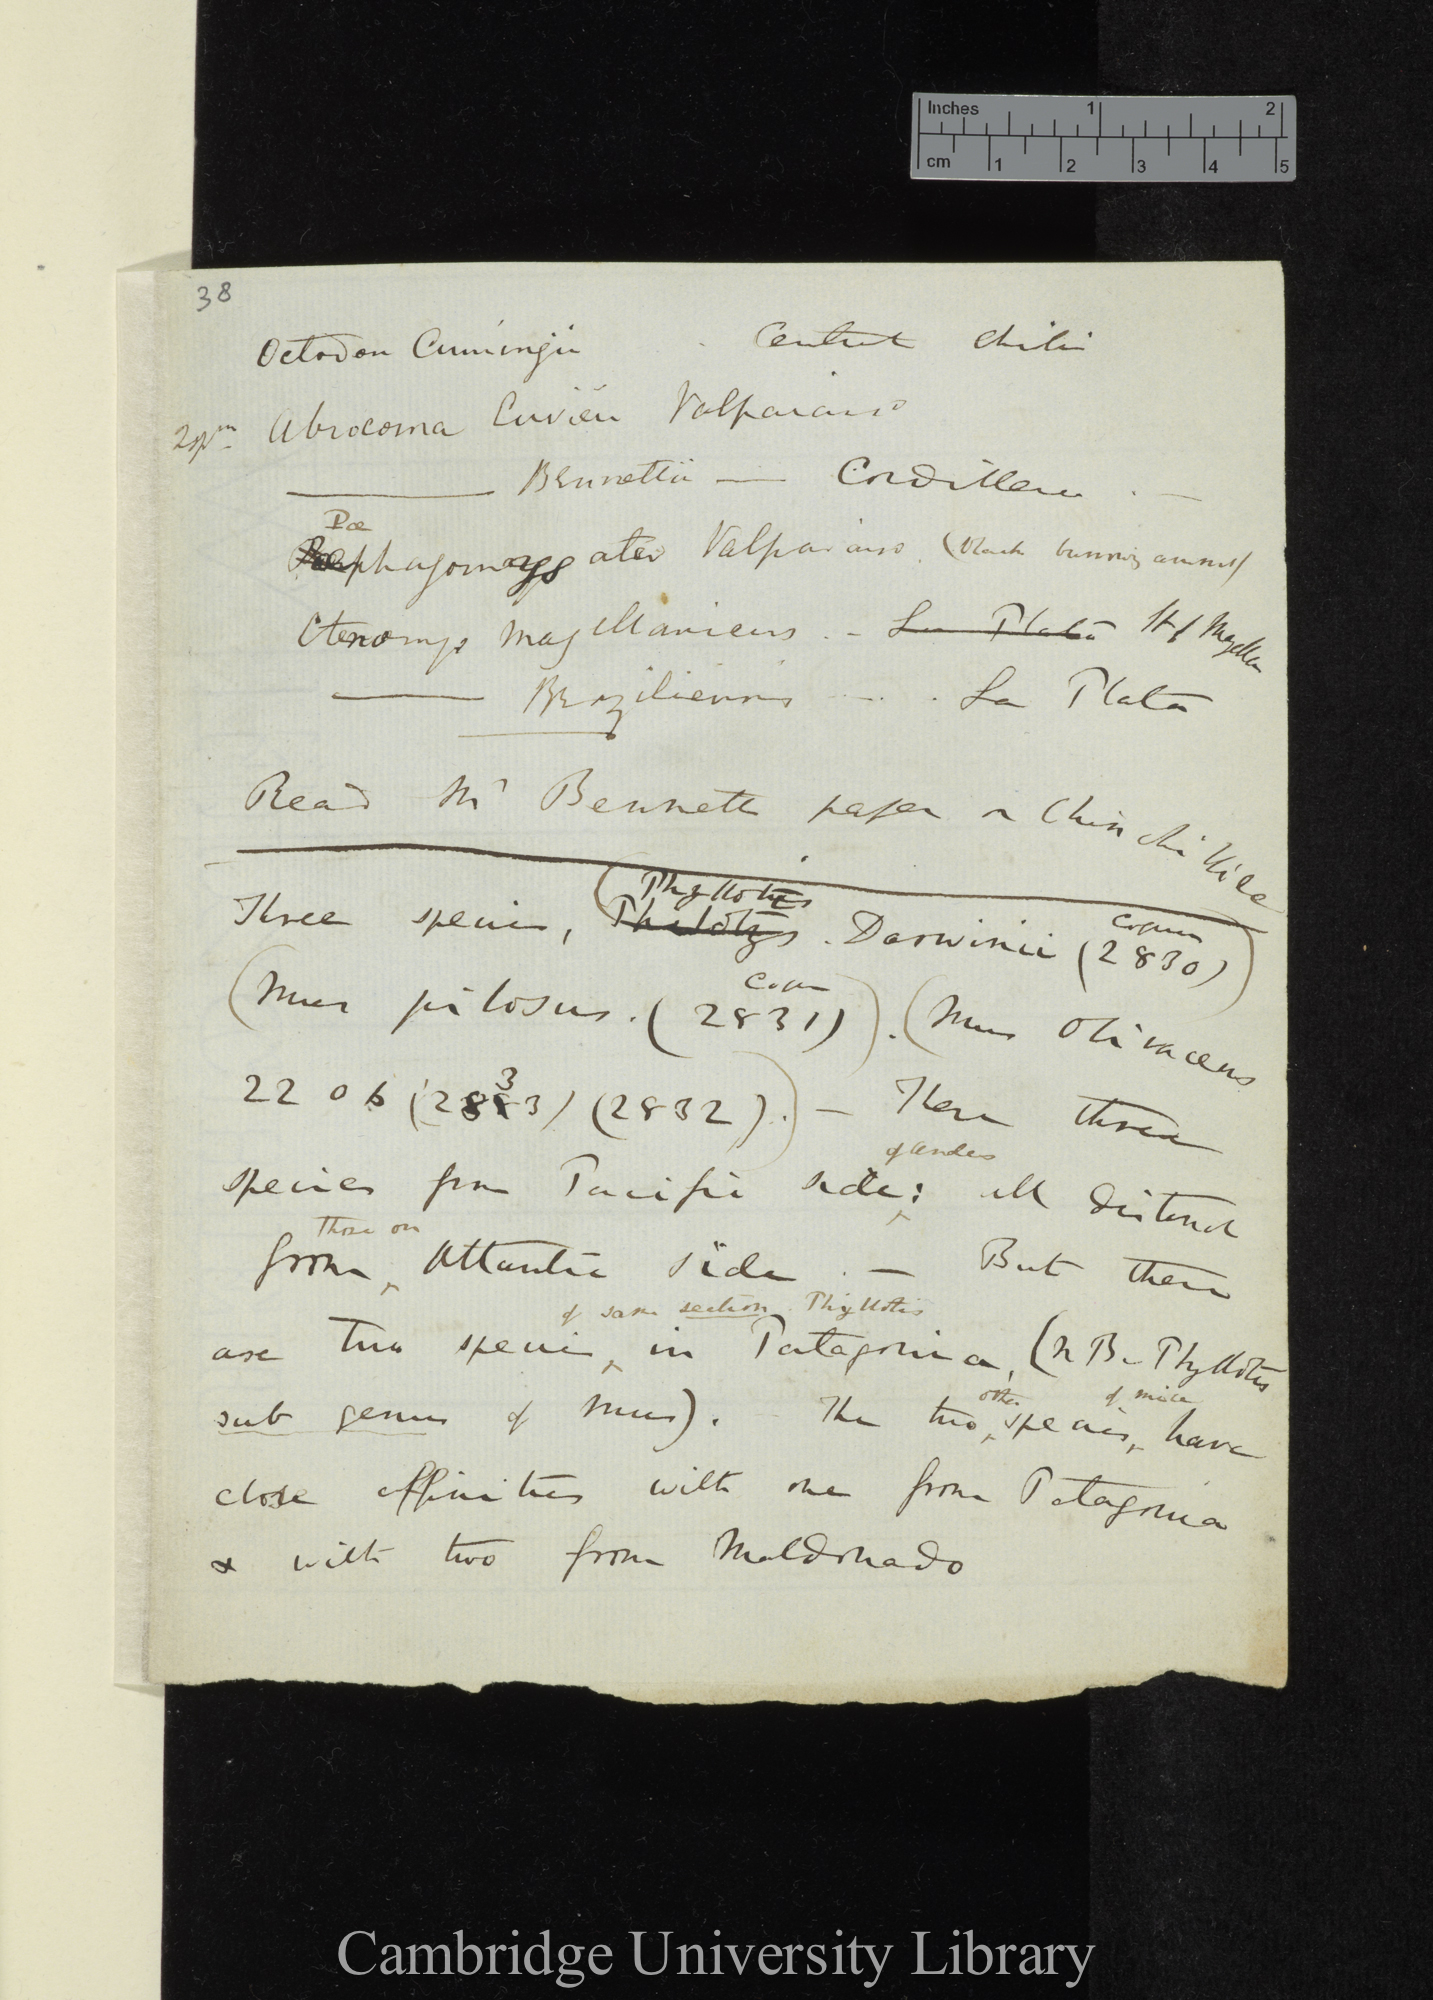 Inches 1 2
cm 1 2 3 4 5
38
Octodon Cumingii . Central Chili
2 spm Abrocoma Cuvieri Valparaiso
——— Bennettii — Cordillera . —
Pœ
phagomys ater Valparaiso (black burrowing animal)
Ctenomys Magellanicus . – La Plata St of Magellan
——— Braziliensis — . La Plata
Read Mr Bennett paper on Chinchillidæ
(Phyllotis
Three species, . Darwinii (2830)
(Mus pilosus. (2831)). (Mus olivaceus
3
2206 (2883) (2832)). — These three
of Andes
species from Pacific side: all distinct
those on
from Attantic side . — But there
of same section Phyllotis
are two species, in Patagonia, (N B. Phyllotis
sub genus of Mus). The two other species, of mice have
close affinities with one from Patagonia
& with two from Maldonado
Cambridge University Library